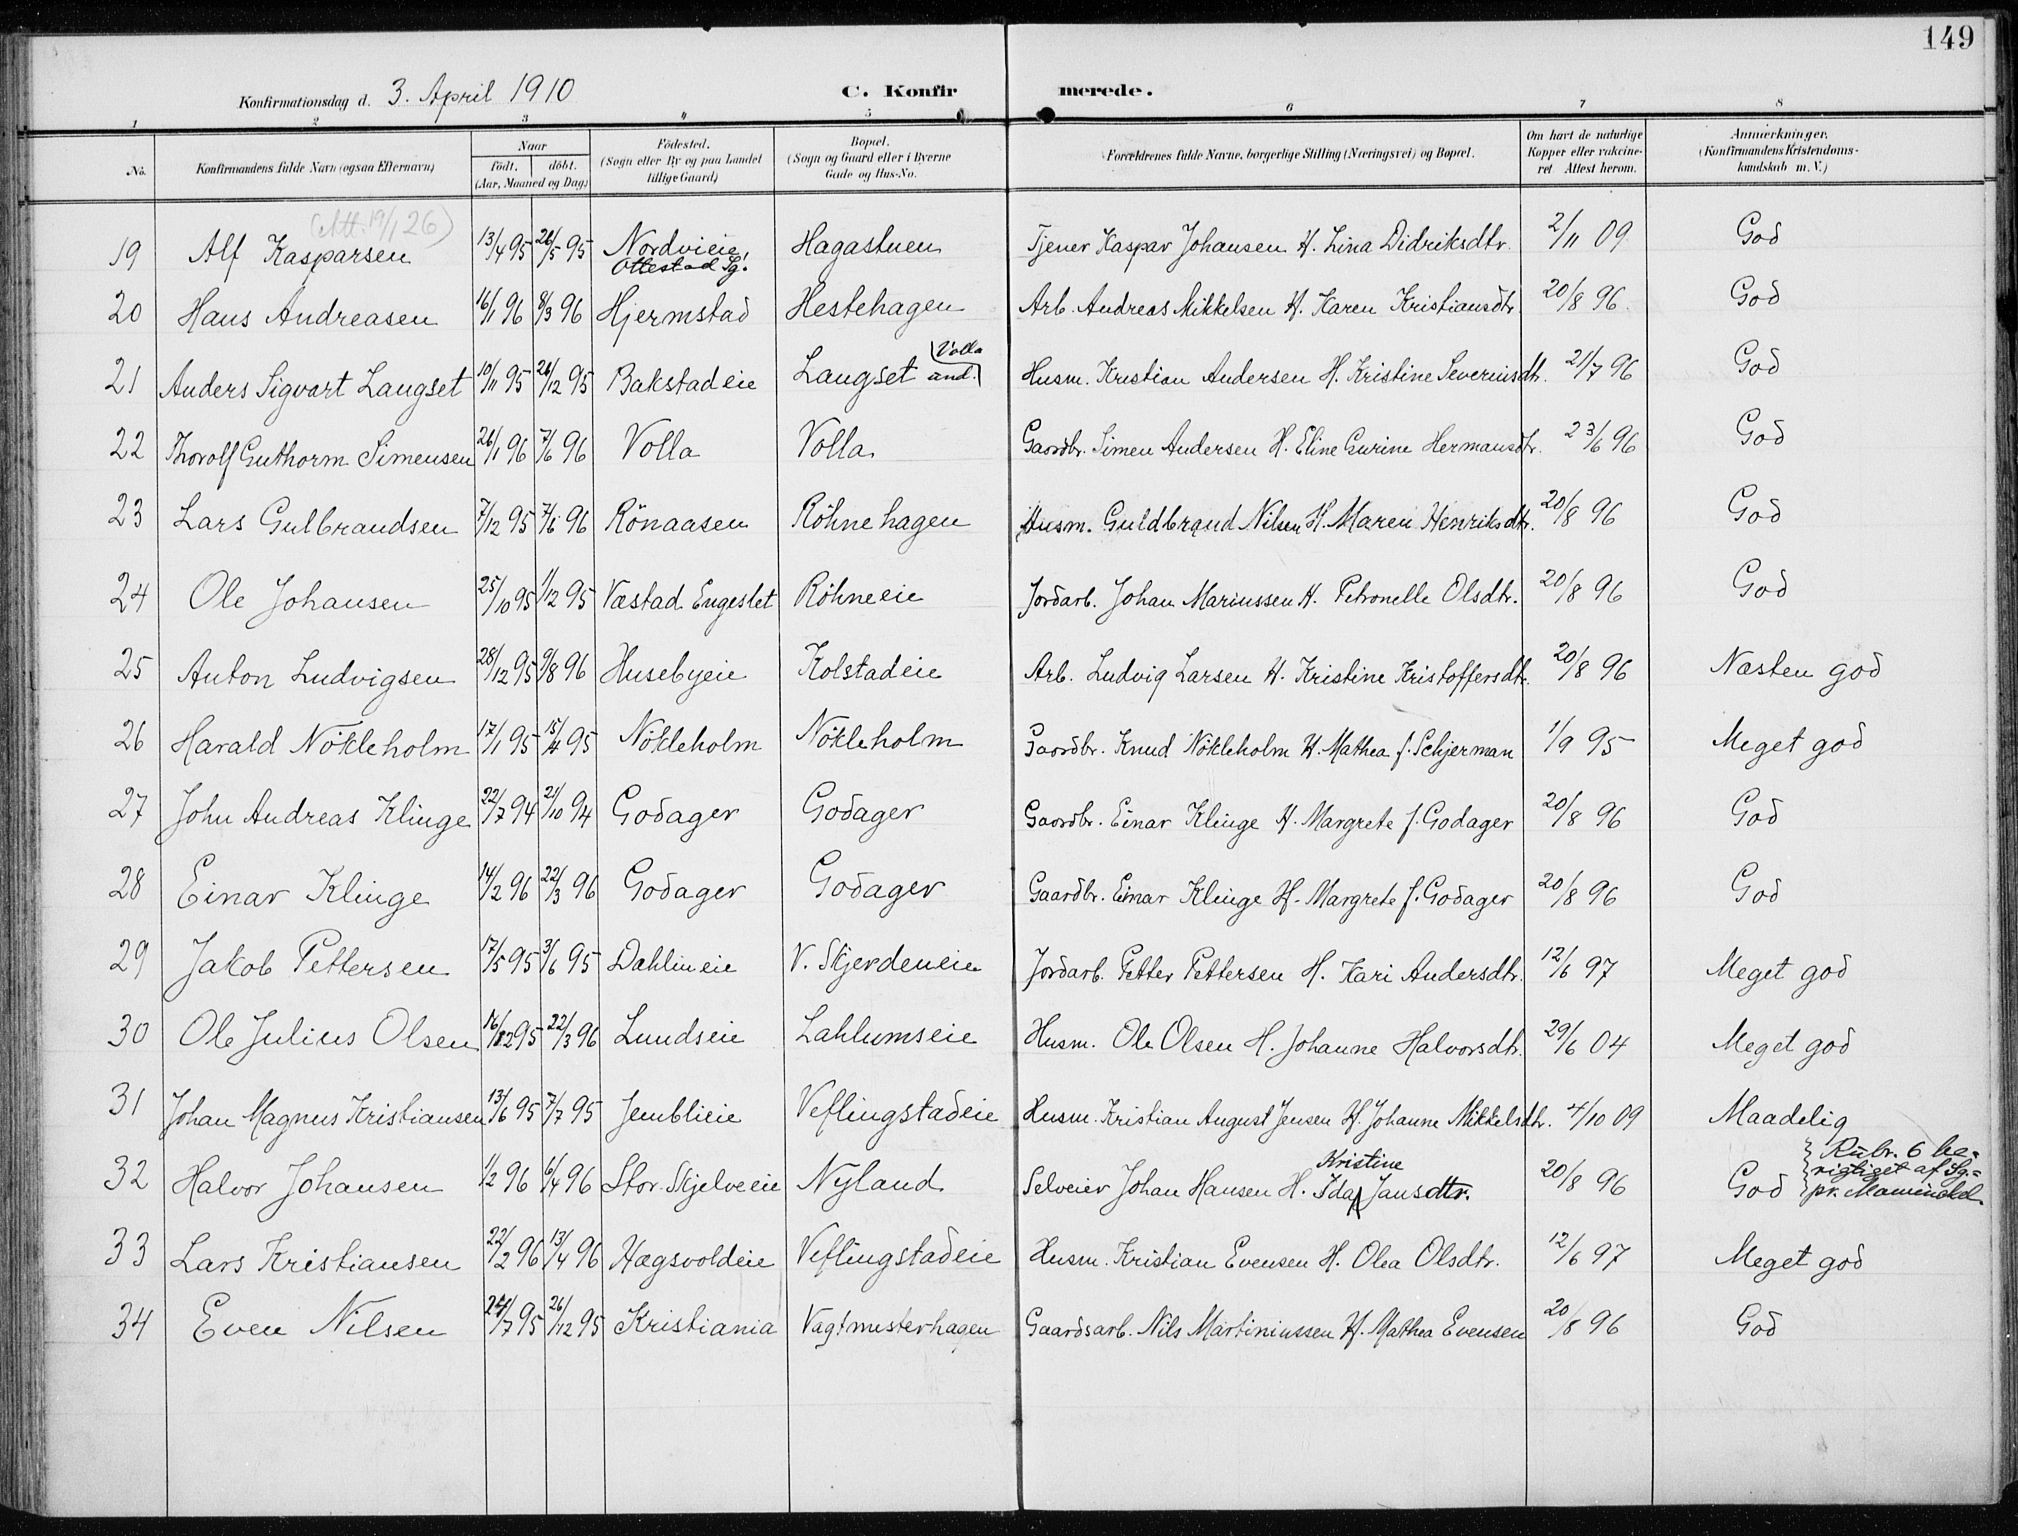 149
Konfirmationsdag d. 3. April 1910 C. Konfirmerede.
1 2 3 4 5 6 7 8
No. Konfirmandens fulde Navn (ogsaa Efternavn) Naar födt. döbt. (Aar, Maaned og Dag) Födested. (Sogn eller By og paa Landet tillige Gaard) Bopæl. (Sogn og Gaard eller i Byerne Gade og Hus-No. Forældrenes fulde Navne, borgerlige Stilling (Næringsvei) og Bopæl. Om havt de naturlige Kopper eller vaccineret Attest herom. Anmærkninger. (Konfirmandens Kristendomskundskab m. V.)
(Att. 19/1 26)
19 Alf Kasparsen 13/4 95 26/5 95 Nordvieie Ottestad Sg! Hagastuen Tjener Kaspar Johansen H. Lina Didriksdtr. 2/11 09 God
20 Hans Andreasen 16/1 96 8/3 96 Hjermstad Hestehagen Arb. Andreas Mikkelsen H. Karen Kristiansdtr 20/8 96. God
21 Anders Sigvart Langset 10/11 95 26/12 95 Bakstadeie Langset Volla and. Husm. Kristian Andersen H. Kristine Severinsdtr. 21/7 96 God
22 Thorolf Guthorm Simensen 26/1 96 7/6 96 Volla Volla Gaardbr. Simen Andersen H. Eline Gurine Hermansdtr. 23/6 96 God
23 Lars Gulbrandsen 7/12 95 7/6 96 Rönaasen Röhnehagen Husm. Guldbrand Nilsen H. Maren Henriksdtr. 20/8 96 God
24 Ole Johansen 25/10 95 1/12 95 Væstad Engeslet Röhneeie Jordarb. Johan Mariussen H. Petronelle Olsdtr. 20/8 96 God
25 Anton Ludvigsen 28/12 95 9/8 96 Husebyeie Kolstadeie Arb. Ludvig Larsen H. Kristine Kristoffersdtr. 20/8 96 Næsten god
26 Harald Nökleholm 17/1 95 15/4 95 Nökleholm Nökleholm Gaardbr. Knud Nökleholm H. Mathea f. Schjerman 1/9 95 Meget god
27 John Andreas Klinge 22/7 94 21/10 94 Godager Godager Gaardbr. Einar Klinge H. Margrete f. Godager 20/8 96 God
28 Einar Klinge 14/2 96 22/3 96 Godager Godager Gaardbr. Einar Klinge H. Margrete f. Godager 20/8 96 God
29 Jakob Pettersen 17/5 95 3/6 95 Dahlineie V. Skjerdeneie Jordarb. Petter Pettersen H. Kari Andersdtr. 12/6 97 Meget god
30 Ole Julius Olsen 16/12 95 22/3 96 Lundseie Lahlumseie Husm. Ole Olsen H. Johanne Halvorsdtr. 29/6 04 Meget god
31 Johan Magnus Kristiansen 13/6 95 7/7 95 Jemblieie Veflingstadeie Husm. Kristian August Jensen H. Johanne Mikkelsdtr. 4/10 09 Maadelig
32 Halvor Johansen 1/2 96 6/4 96 Stor. Skjelveeie Nyland Selveier Johan Hansen H. Ida Kristine Jansdttr. 20/8 96 God Rubr. 6 berigtiget af Sg.=pr.
33 Lars Kristiansen 22/2 96 13/4 96 Hægsvoldeie Veflingstadeie Husm. Kristian Evensen H. Olea Olsdtr. 12/6 97 Meget god
34 Even Nilsen 24/7 95 26/12 95 Kristiania Vagtmesterhagen Gaardsarb. Nils Martiniussen H. Mathea Evensen 20/8 96 God